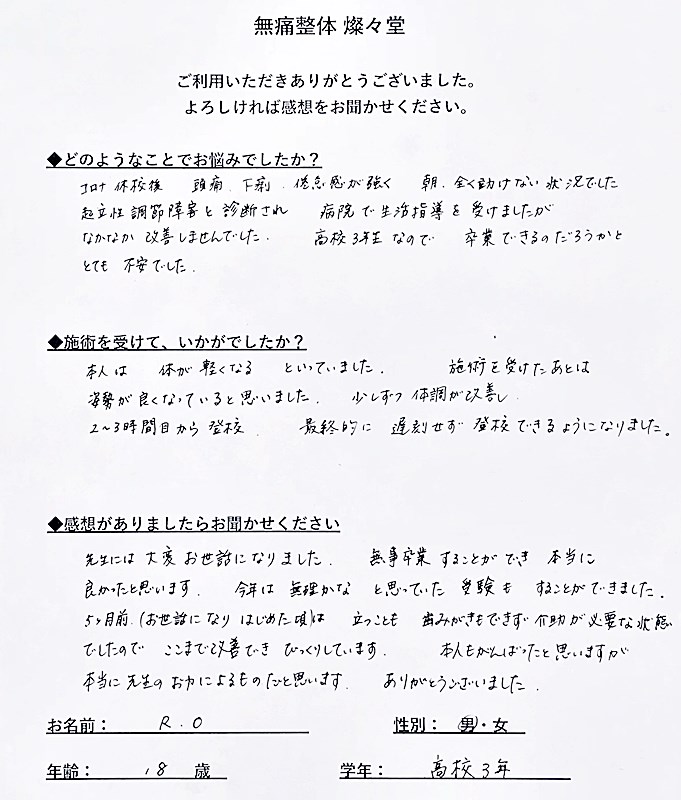 無痛整体 燦々堂
ご利用いただきありがとうございました。
よろしければ感想をお聞かせください。
◆どのようなことでお悩みでしたか？
コロナ休校後 頭痛、下痢、倦怠感が強く 朝、全く動けない状況でした
起立性調節障害と診断され 病院で生活指導を受けましたが
なかなか改善しませんでした。 高校3年生なので 卒業できるのだろうかと
とても不安でした。
◆施術を受けて、いかがでしたか？
本人は 体が軽くなる といっていました。 施術を受けたあとは
姿勢が良くなっていると思いました。 少しずつ体調が改善し
2〜3時間目から登校、 最終的に 遅刻せず登校できるようになりました。
◆感想がありましたらお聞かせください
先生には大変お世話になりました。 無事卒業することができ 本当に
良かったと思います。 今年は無理かな と思っていた 受験も することができました。
5ヶ月前(お世話になりはじめた頃)は 立つことも 歯みがきもできず介助が必要な状態
でしたので ここまで改善でき びっくりしています。 本人もがんばったと思いますが
本当に先生のお力によるものだと思います。 ありがとうございました。
お名前： R.O 性別： 男・女
年齢： 18 歳 学年： 高校3年